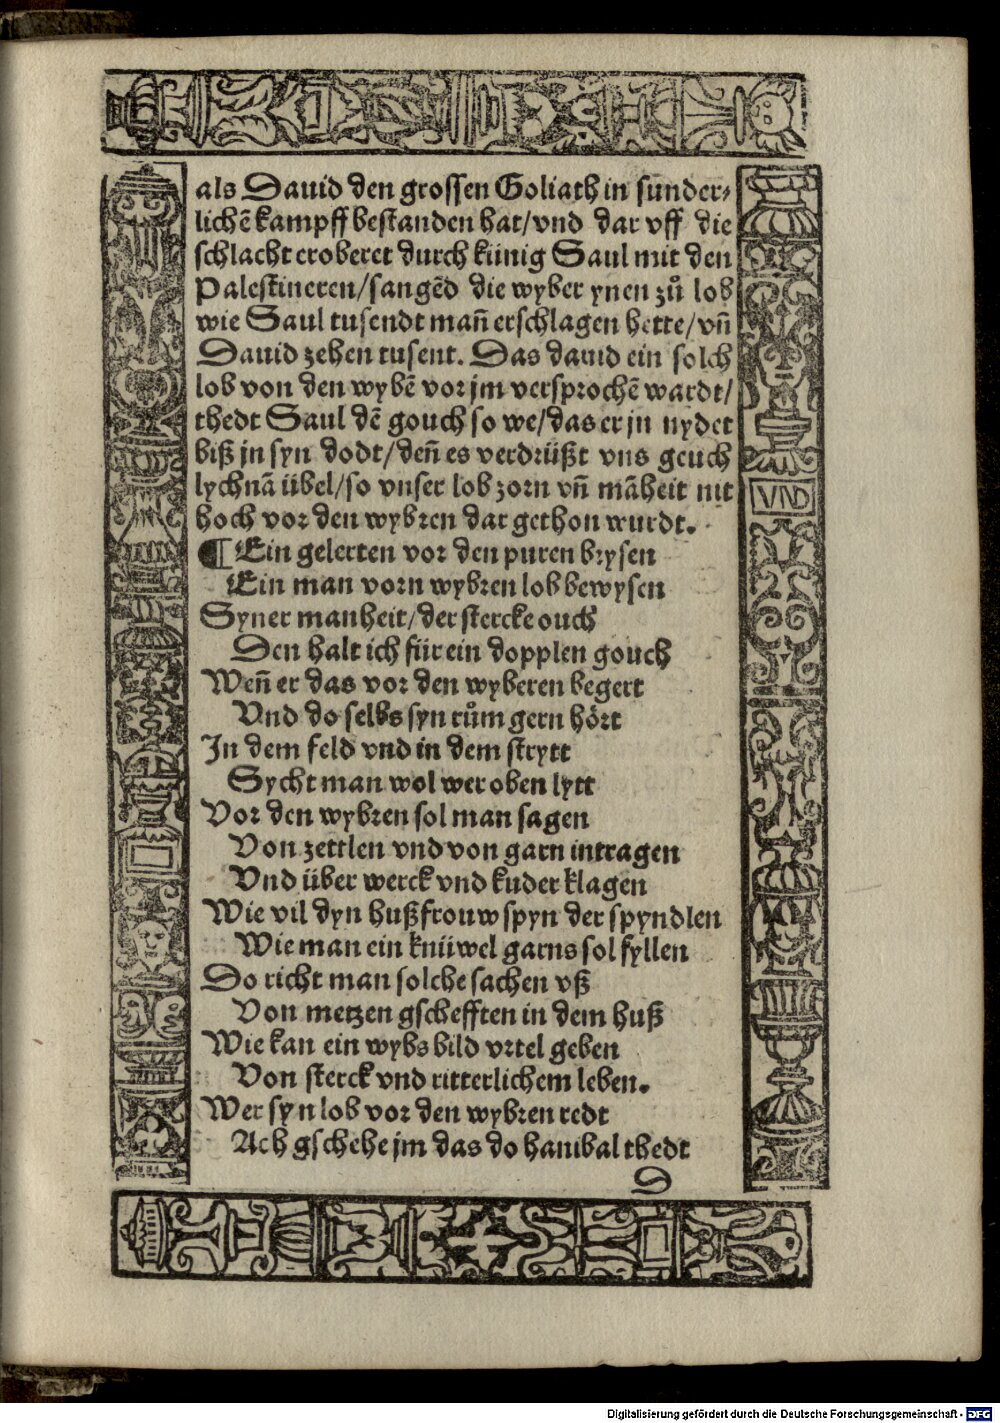 als Dauid den grossen Goliath in sunder⸗
lichẽ kampff bestanden hat/vnd dar vff die
schlacht eroberet durch künig Saul mit den
Palestineren/sangẽd die wyber ynen zů lob
wie Saul tusendt mañ erschlagen hette/vñ
Dauid zehen tusent. Das dauid ein solch
lob von den wybẽ vor jm versprochẽ wardt/
thedt Saul dẽ gouch so we/das er jn nydet
biß jn syn dodt/deñ es verdrüßt vns geuch
lychnã übel/so vnser lob zorn vñ mãheit nit
hoch vor den wybren dar gethon wurdt.
¶ Ein gelerten vor den puren brysen
Ein man vorn wybren lob bewysen
Syner manheit/der stercke ouch
Den halt ich für ein dopplen gouch
Weñ er das vor den wyberen begert
Vnd do selbs syn rům gern hört
In dem feld vnd in dem strytt
Sycht man wol wer oben lytt
Vor den wybren sol man sagen
Von zettlen vnd von garn intragen
Vnd über werck vnd kuder klagen
Wie vil dyn hußfrouw spyn der spyndlen
Wie man ein knüwel garns sol fyllen
Do richt man solche sachen vß
Von metzen gschefften in dem huß
Wie kan ein wybs bild vrtel geben
Von sterck vnd ritterlichem leben.
Wer syn lob vor den wybren redt
Ach gschehe jm das do hanibal thedt
D
VND
Digitalisierung gefördert durch die Deutsche Forschungsgemeinschaft - DFG